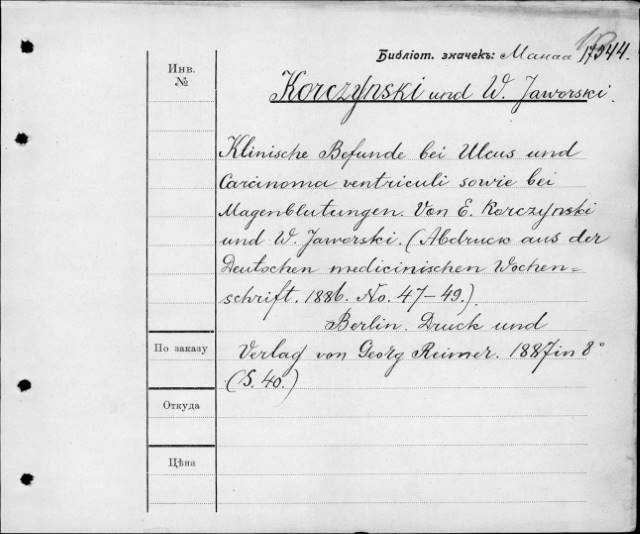 Библіот. значекъ: Манаа 17944.
Инв.
№
Korczynski und W. Jaworski.
Klinische Befunde bei Ulcus und
Carcinoma ventriculi sowie bei
Magenblutungen. Von E. Korczynski
und W. Jaworski. (Abdruck aus der
Deutschen medicinischen Wochen=
schrift. 1886. No. 47-49.)
Berlin. Druck und
По заказу
Verlag von Georg Reimer. 1887 in 8°
(S. 40.)
Откуда
Цѣна